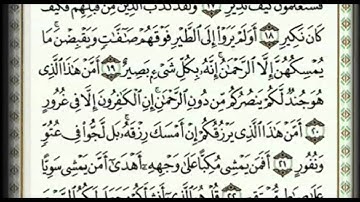 فَسَتَعْلَمُونَ كَيْفَ نَذِيرِ ١٧ وَلَقَدْ كَذَّبَ ٱلَّذِينَ مِن قَبْلِهِمْ فَكَيْفَ
كَانَ نَكِيرِ ١٨ أَوَلَمْ يَرَوْا۟ إِلَى ٱلطَّيْرِ فَوْقَهُمْ صَٰٓفَّٰتٍ وَيَقْبِضْنَ ۚ مَا
يُمْسِكُهُنَّ إِلَّا ٱلرَّحْمَٰنُ ۚ إِنَّهُۥ بِكُلِّ شَىْءٍۭ بَصِيرٌ ١٩ أَمَّنْ هَٰذَا ٱلَّذِى
هُوَ جُندٌ لَّكُمْ يَنصُرُكُم مِّن دُونِ ٱلرَّحْمَٰنِ ۚ إِنِ ٱلْكَٰفِرُونَ إِلَّا فِى غُرُورٍ
٢٠ أَمَّنْ هَٰذَا ٱلَّذِى يَرْزُقُكُمْ إِنْ أَمْسَكَ رِزْقَهُۥ ۚ بَل لَّجُّوا۟ فِى عُتُوٍّ
وَنُفُورٍ ٢١ أَفَمَن يَمْشِى مُكِبًّا عَلَىٰ وَجْهِهِۦٓ أَهْدَىٰٓ أَمَّن يَمْشِى سَوِيًّا
عَلَىٰ صِرَٰطٍ مُّسْتَقِيمٍ ٢٢ قُلْ هُوَ ٱلَّذِىٓ أَنشَأَكُمْ وَجَعَلَ لَكُمُ ٱلسَّمْعَ